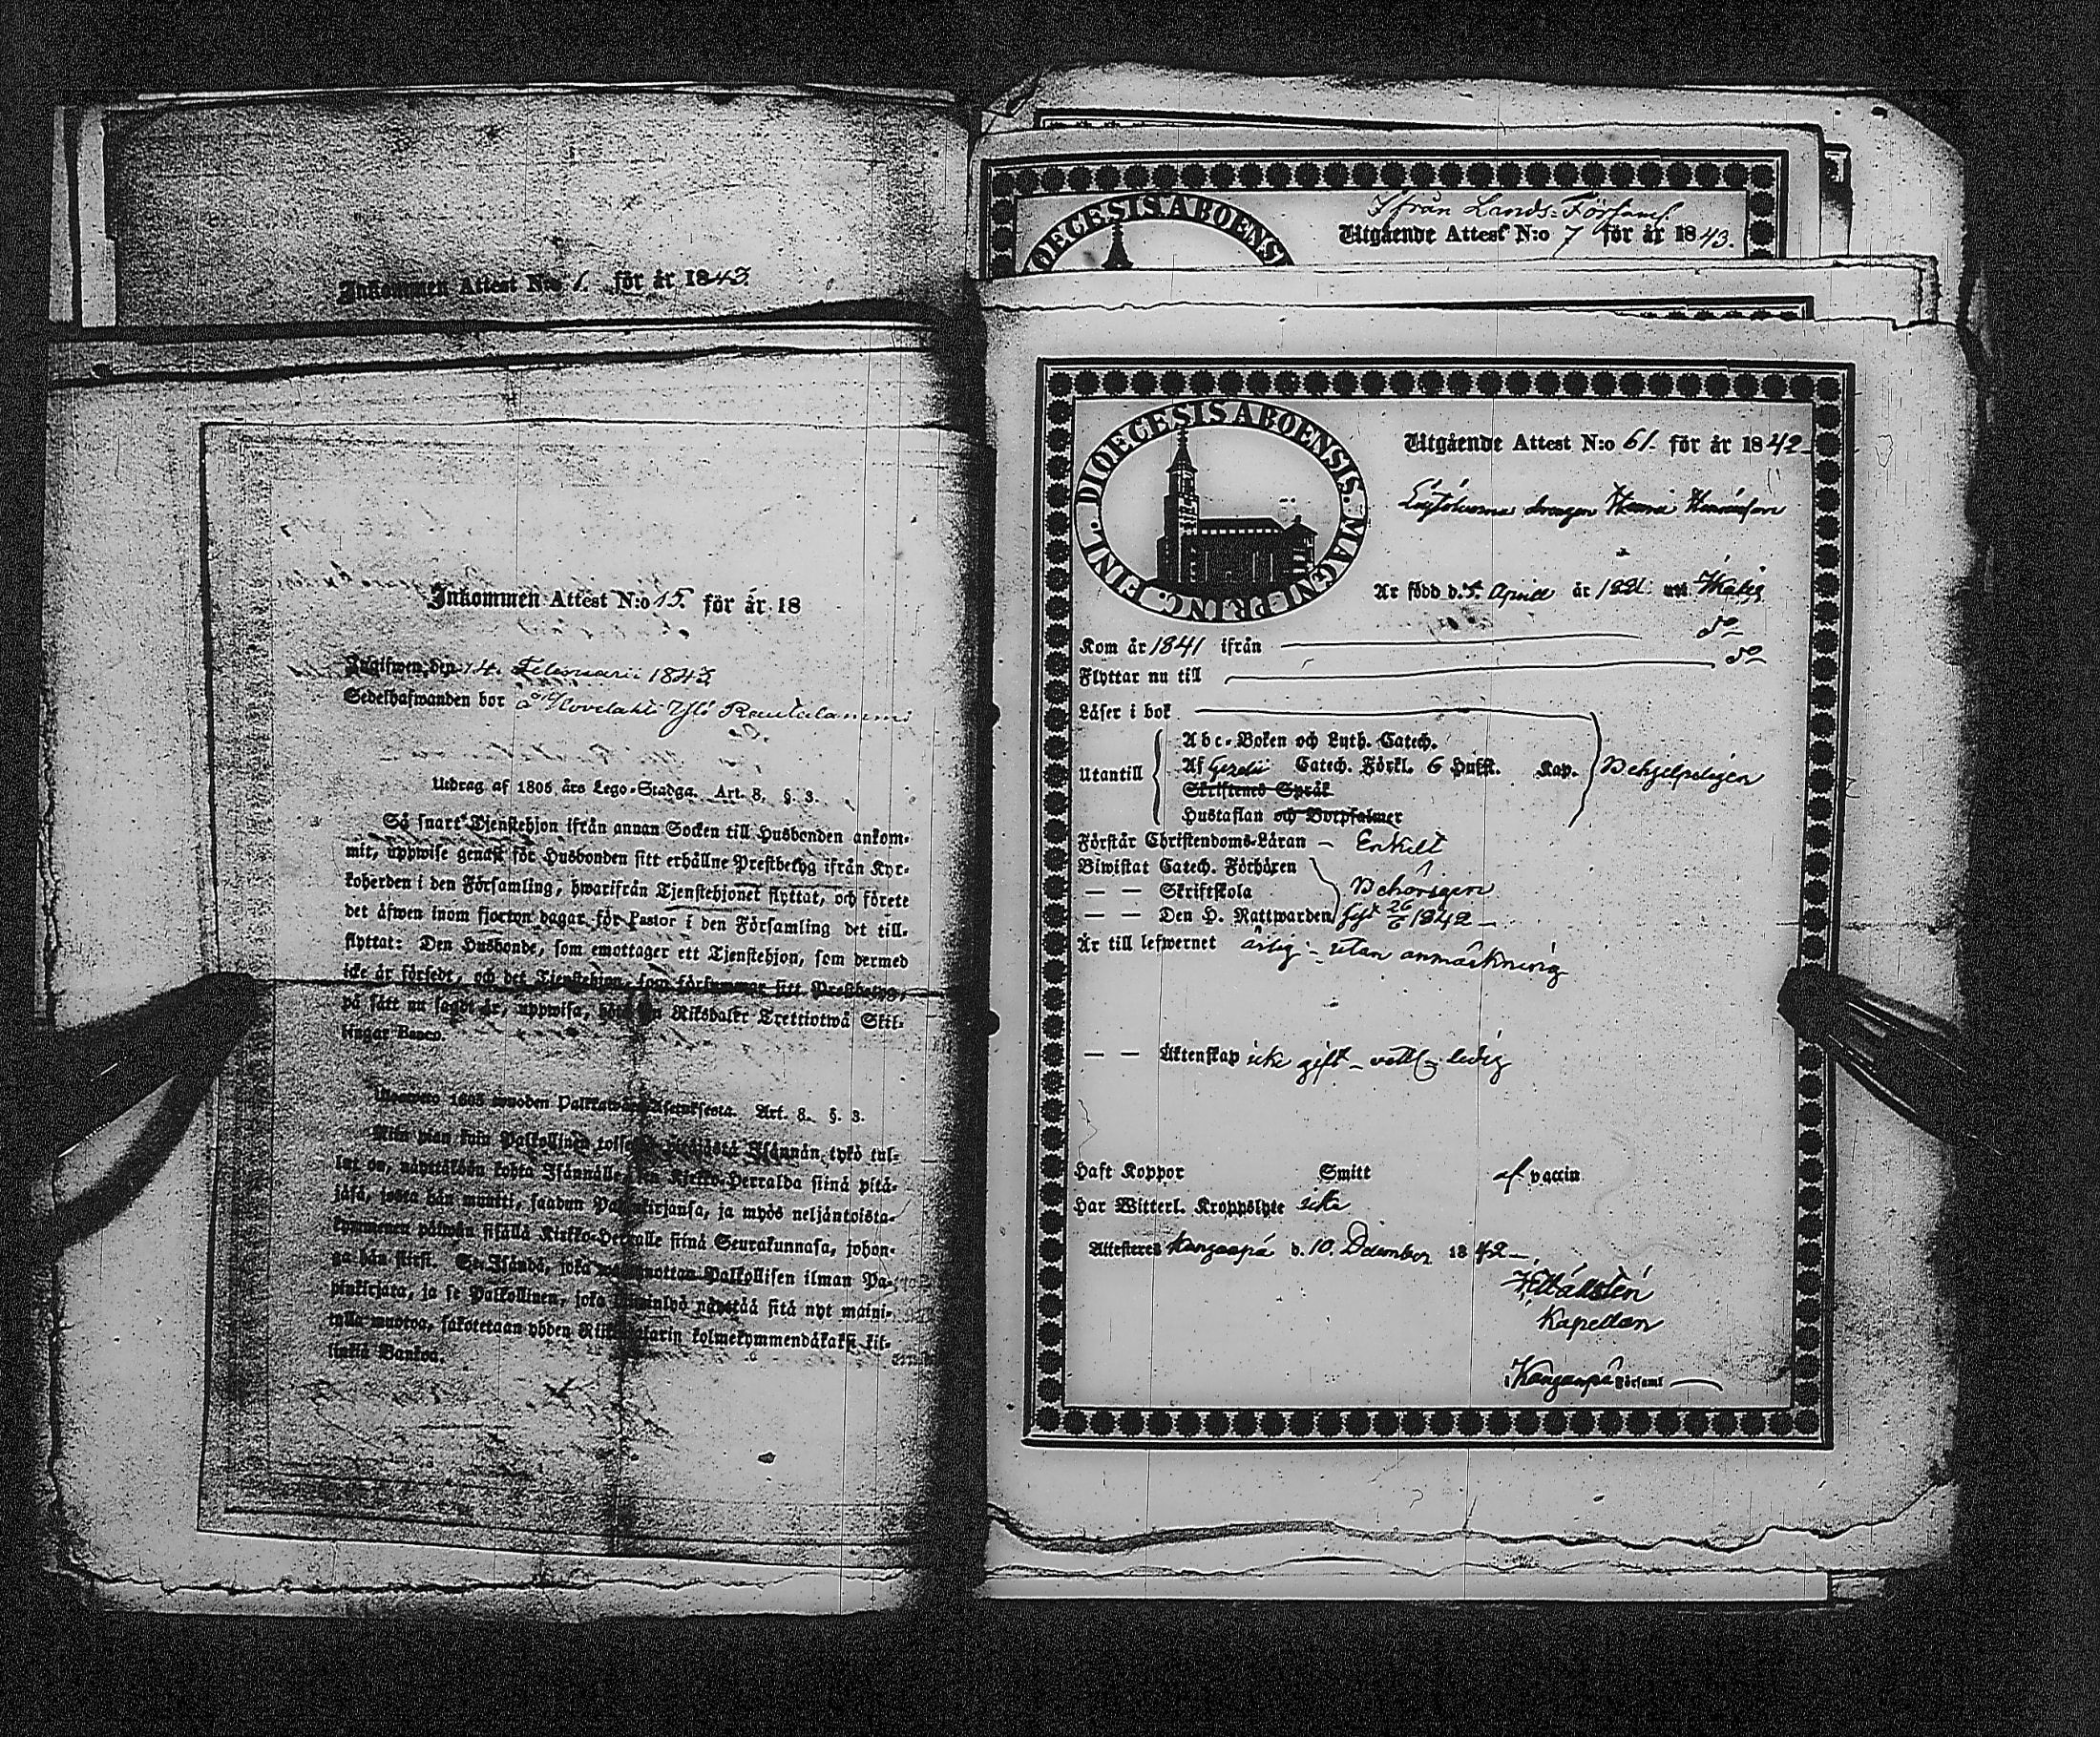 Inkommen Attest N:o 1. för år 1843.
Inkommen Attest N:o 15. för år 18
Ingifwen, den 14. Februarii 1843
Sedelhafwanden bor å Yli Rautalammi
Utdrag af 1805 års Lego-Stadga. Art. 8. §. 3.
Så snart Tjenstehjon ifrån annan Socken till Husbonden ankom-
mit, uppwise genast för Husbonden sitt erhållne Prestbetyg ifrån Kyr-
koherden i den Församling, hwarifrån Tjenstehjonet flyttat, och förete
det äfwen inom fjorton dagar för Pastor i den Församling det till-
flyttat: Den Husbonde, som emottager ett Tjenstehjon, som dermed
icke är försedt, och det Tjenstehjon, som försummar sitt Prestbetyg,
på sätt nu sagdt är, uppwisa, böte en Riksdaler Trettiotwå Skil-
lingar Banco.
1805 wuoden Palkkawäen Asetuksesta. Art. 8. §. 3.
Niin pian kuin Palkollinen toisesta pitäjästä Isännän tykö tul-
lut on, näyttäköön kohta Isännälle sen Kirkko-Herralda siinä pitä-
jäsä, josta hän muutti, saadun Papinkirjansa, ja myös neljäntoista-
kymmenen päiwän sisällä Kirkko-Herralle siinä Seurakunnasa, johon-
ga hän siirsi. Se Isändä, joka wastaanottaa Palkollisen ilman Pa-
pinkirjata, ja se Palkollinen, joka laiminlyö näyttää sitä nyt maini-
tulla muotoa, sakotetaan yhden Riikintalarin kolmekymmendäkaksi kil-
linkiä Bankoa.
DIOECESIS ABOENS
Ifrån Lands-Församl.
Utgående Attest N:o 7 för år 1843.
FINL. DIOECESIS ABOENSIS. MAGNI PRINC.
Utgående Attest N:o 61. för år 1842
drengen Henric Henricsson
Är född d. 5. Aprill år 1821. uti
Kom år 1841 ifrån do
Flyttar nu till do
Läser i bok
Utantill
Abc-Boken och Luth. Catech.
Af Gezelii Catech. Förkl. 6 Hufst. Kap.
Behjelpeligen
Skriftenes Språk
Hustaflan och Botpsalmer
Förstår Christendoms-Läran – Enkelt
Biwistat Catech. Förhören
— — Skriftskola Behörigen
— — Den H. Nattwarden sist 26/6 1842 –
Är till lefwernet ärlig – utan anmärkning
— — Äktenskap icke gift – ledig
Haft Koppor Smitt af vaccin
Har Witterl. Kroppslyte icke
Attesteras Kangaspä d. 10. December 1842 –
Kapellan
i Kangaspä Församl